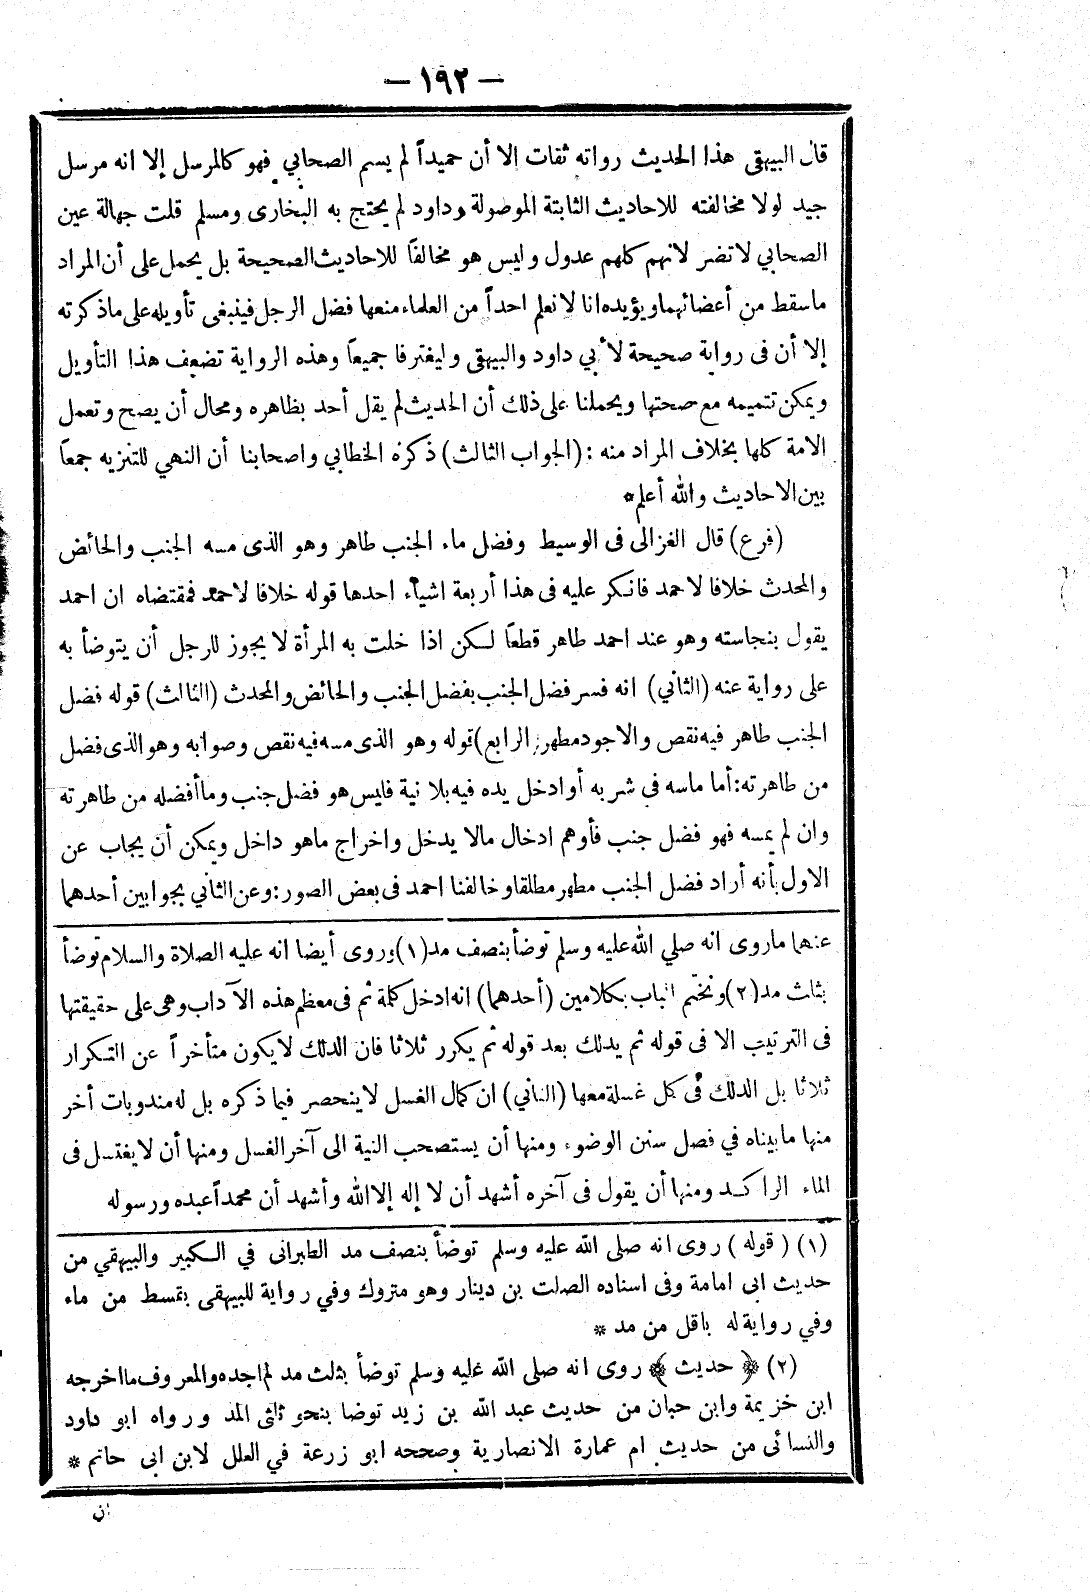 — ١٩٢ —
قال البيهقى هذا الحديث رواته ثقات الا أن حميداً لم يسم الصحابي فهو كالمرسل إلا انه مرسل
جيد لولا مخالفته للاحاديث الثابتة الموصولة وداود لم يحتج به البخارى ومسلم قلت جهالة عين
الصحابي لا تضر لانهم كلهم عدول وليس هو مخالفاً للاحاديث الصحيحة بل يحمل على أن المراد
ماسقط من أعضائهما ويؤيده انا لا نعلم احداً من العلماء منعها فضل الرجل فينبغى تأويله على ماذكرته
إلا أن فى رواية صحيحة لأبي داود والبيهقى وليغترفا جميعاً وهذه الرواية تضعف هذا التأويل
ويمكن تتميمه مع صحتها ويحملنا على ذلك أن الحديث لم يقل أحد بظاهره ومحال أن يصح وتعمل
الامة كلها بخلاف المراد منه : (الجواب الثالث) ذكره الخطابي واصحابنا أن النهي للتنزيه جمعاً
بين الاحاديث والله أعلم*
(فرع) قال الغزالى فى الوسيط وفضل ماء الجنب طاهر وهو الذى مسه الجنب والحائض
والمحدث خلافا لاحمد فانكر عليه فى هذا أربعة اشياء احدها قوله خلافا لاحمد فمقتضاه ان احمد
يقول بنجاسته وهو عند احمد طاهر قطعاً لكن اذا خلت به المرأة لا يجوز للرجل أن يتوضأ به
على رواية عنه (الثاني) انه فسر فضل الجنب بفضل الجنب والحائض والمحدث (الثالث) قوله فضل
الجنب طاهر فيه نقص والاجود مطهر(الرابع) قوله وهو الذى مسه فيه نقص وصوابه وهو الذى فضل
من طاهرته: أما ماسه في شربه أو ادخل يده فيه بلا نية فليس هو فضل جنب وما أفضله من طاهرته
وان لم يمسه فهو فضل جنب فأوهم ادخال مالا يدخل واخراج ماهو داخل ويمكن أن يجاب عن
الاول بأنه أراد فضل الجنب مطهر مطلقا وخالفنا احمد فى بعض الصور: وعن الثاني بجوابين أحدهما
عنها ماروى انه صلي الله عليه وسلم توضأ بنصف مد (١) وروى أيضا انه عليه الصلاة والسلام توضأ
بثلث مد (٢) ونختم الباب بكلامين (أحدهما) انه ادخل كلمة ثم فى معظم هذه الآداب وهى على حقيقتها
فى الترتيب الا فى قوله ثم يدلك بعد قوله ثم يكرر ثلاثا فان الدلك لا يكون متأخراً عن التكرار
ثلاثا بل الدلك فى كل غسلة معها (الثاني) ان كمال الغسل لاينحصر فيما ذكره بل له مندوبات أخر
منها مابيناه في فصل سنن الوضوء ومنها أن يستصحب النية الى آخر الغسل ومنها أن لا يغتسل فى
الماء الراكد ومنها أن يقول فى آخره أشهد أن لا إله إلا الله وأشهد أن محمداً عبده ورسوله
(١) (قوله) روى انه صلى الله عليه وسلم توضأ بنصف مد الطبرانى في الكبير والبيهقي من
حديث ابى امامة وفى اسناده الصلت بن دينار وهو متروك وفي رواية للبيهقى بقسط من ماء
وفي رواية له باقل من مد *
(٢) ﴿حديث﴾ روى انه صلى الله عليه وسلم توضأ بثلث مد لم اجده والمعروف ما اخرجه
ابن خزيمة وابن حبان من حديث عبد الله بن زيد توضا بنحو ثلثى المد ورواه ابو داود
والنسائى من حديث ام عمارة الانصارية وصححه ابو زرعة في العلل لابن ابى حاتم *
ان